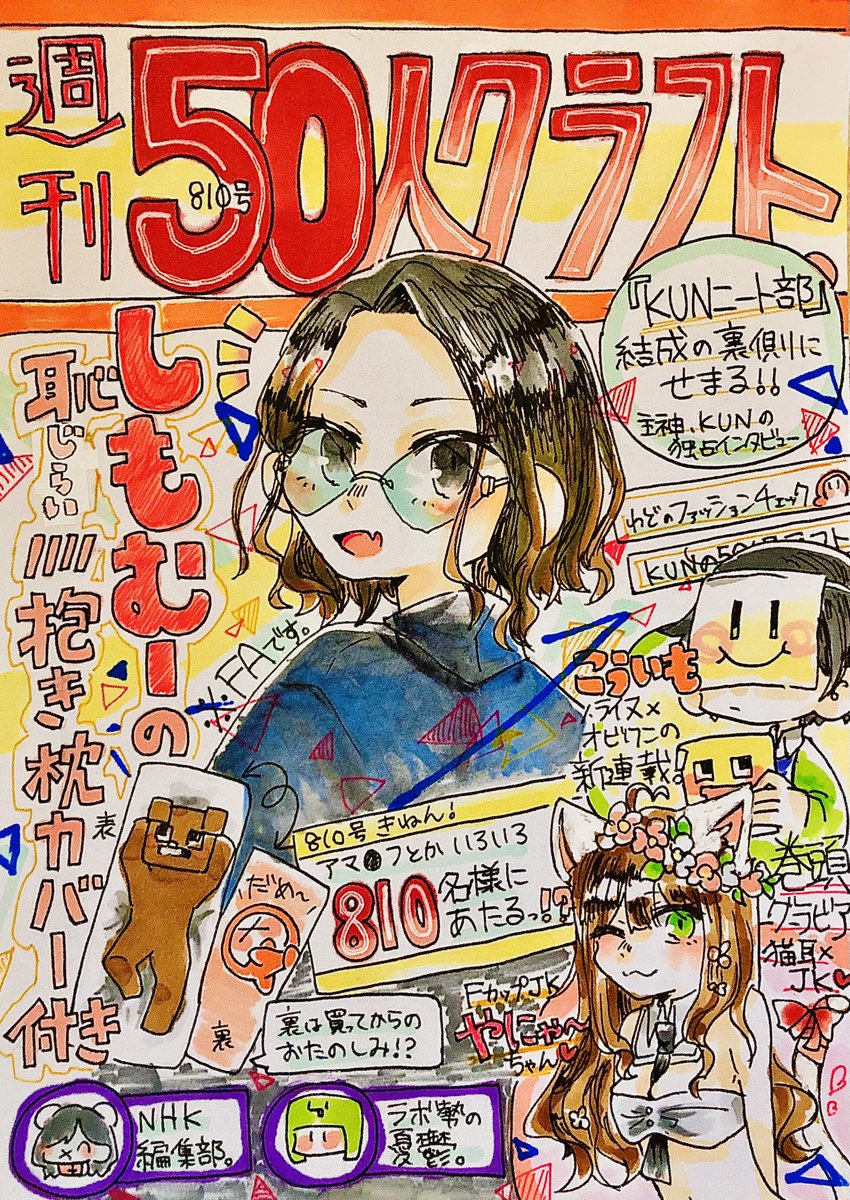 週刊
50人クラフト。
810号
『KUNニート部』
結成の裏側に
せまる!!
主神、KUNの
独占インタビュー
しもむーの
恥じらい////抱き枕カバー付き
わどのファッションチェック
KUNの50人クラフト
※FAです。
こういも
ライヌ×
オビワンの
新連載!
表
810号きねん!
アマ●フとかいろいろ
810名様に
あたるっ!?
だめ〜
裏
裏は買ってからの
おたのしみ!?
巻頭
グラビア
猫耳×
JK♥
FカップJK
やにゃ〜
ちゃん♥
NHK
編集部。
ラボ勢の
憂鬱。